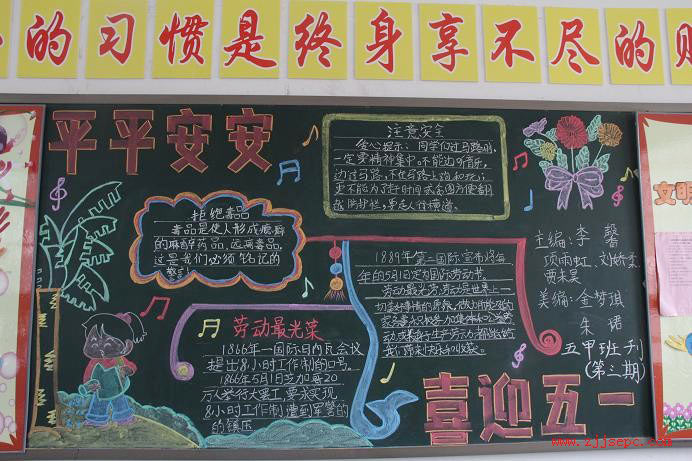 的习惯是终身享不尽的
平平安安
注意安全
爱心提示：同学们过马路时，
一定要精神集中，不能边听音乐，
边过马路，不在马路上追和玩；
更不能为了赶时间或贪图方便翻
越防护栏，要走人行横道。
拒绝毒品
毒品是使人形成瘾癖
的麻醉药品，远离毒品，
这是我们必须铭记的
警言
1889年第二国际宣布将每
年的5月1定为国际劳动节。
劳动最光荣，劳动是世界上一
我们将来快乐和收获。
劳动最光荣
1866年一国际日内瓦会议
提出8小时工作制的口号。
1866年5月1日芝加哥20
万人举行大罢工，要求实现
8小时工作制遭到军警的
的镇压
主编：李馨
项雨虹、刘娇柔
贾采昊
美编：金梦琪
朱珺
五甲班刊
（第三期）
喜迎五一
文明
www.zjjsepc.com